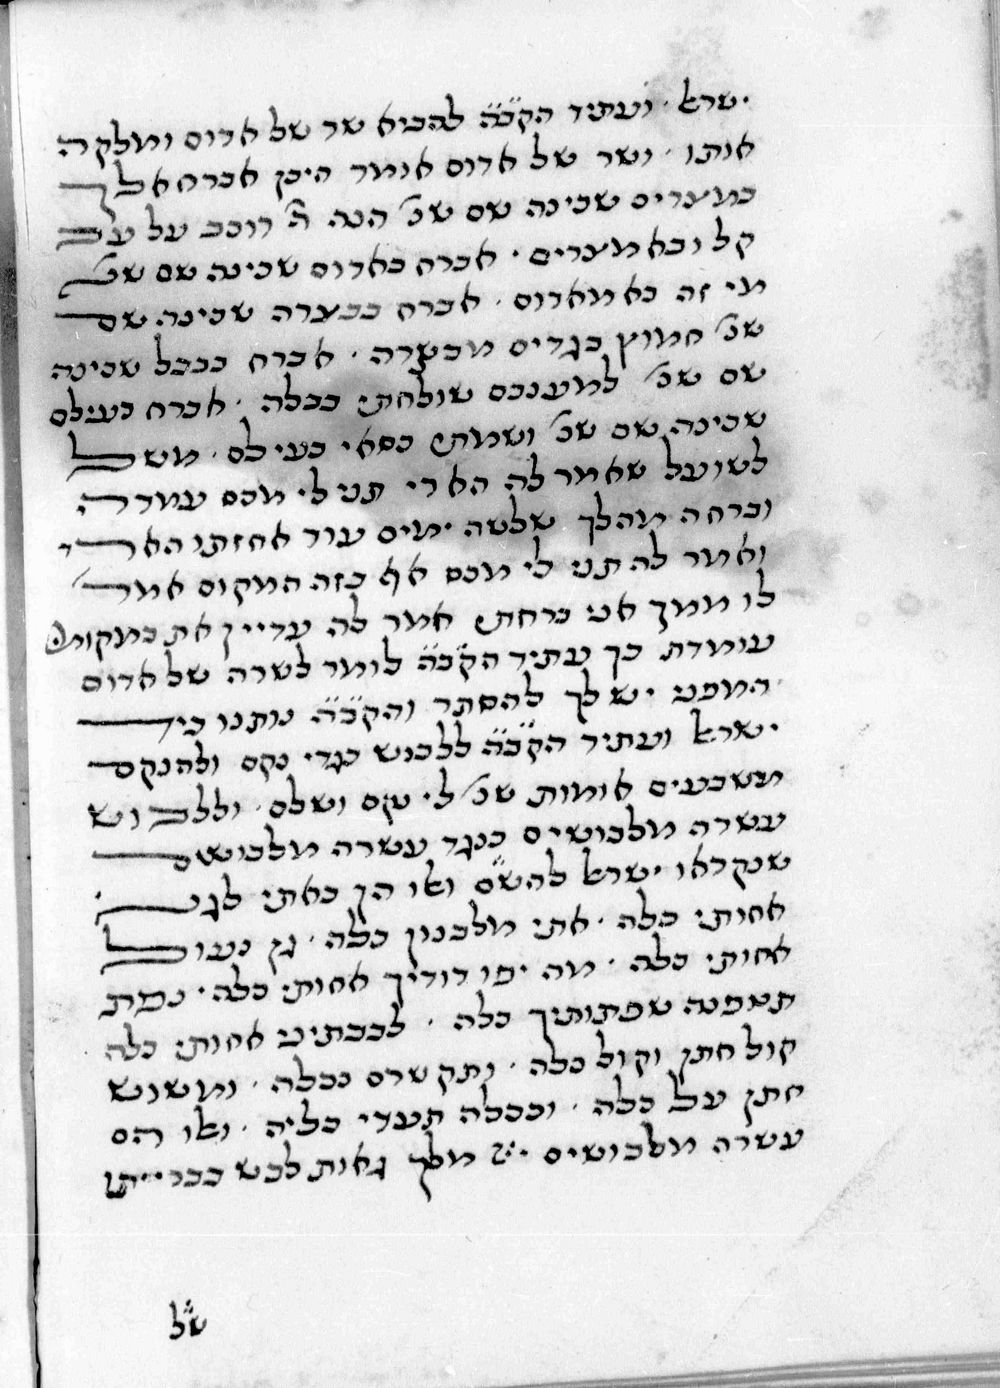 ישראל · ועתיד הקב״ה להביא שר של אדום ומלקה
אותו · ושר של אדום אומר היכן אברח אלך
במצרים שכינה שם שנ׳ הנה ה׳ רוכב על עב
קל ובא מצרים · אברח באדום שכינה שם שנ׳
מי זה בא מאדום · אברח בבצרה שכינה שם
שנ׳ חמוץ בגדים מבצרה · אברח בבבל שכינה
שם שנ׳ למענכם שולחתי בבלה · אברח בעילם
שכינה שם שנ׳ ושמתי כסאי בעילם · משל
לשועל שאמר לה הארי תני לי מכס עמדה
וברחה מהלך שלשה ימים עוד אחזתו הארי
ואמר לה תני לי מכס אף בזה המקום אמר׳
לו ממך אני ברחתי אמר לה עדיין את במקומי
עומדת כך עתיד הקב״ה לומר לשרה של אדום
הממני יש לך להסתר והקב״ה נותנו ביד
ישראל ועתיד הקב״ה ללבוש בגדי נקם ולהנקם
משבעים אומות שנ׳ לי נקם ושלם · וללבוש
עשרה מלבושים כנגד עשרה מלבושים
שנקראו ישראל להש״ם ואלו הן באתי לגני
אחותי כלה · אתי מלבנון כלה · גן נעול
אחותי כלה · מה יפו דודיך אחותי כלה · נפת
תטפנה שפתותיך כלה · לבבתיני אחותי כלה
קול חתן וקול כלה · ותקשרם ככלה · ומשוש
חתן על כלה · וככלה תעדי כליה · ואלו הם
עשרה מלבושים יי׳ מלך גאות לבש בברייתו
ש״ל